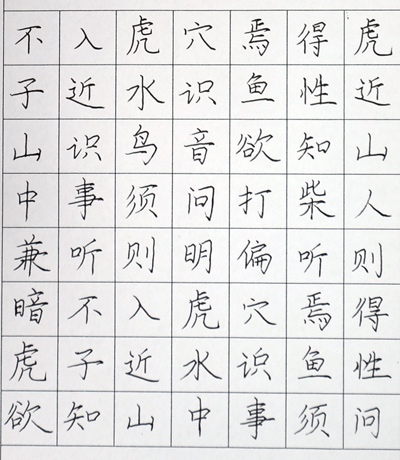 不入虎穴焉得虎
子近水识鱼性近
山识鸟音欲知山
中事须问打柴人
兼听则明偏听则
暗不入虎穴焉得
虎子近水识鱼性
欲知山中事须问